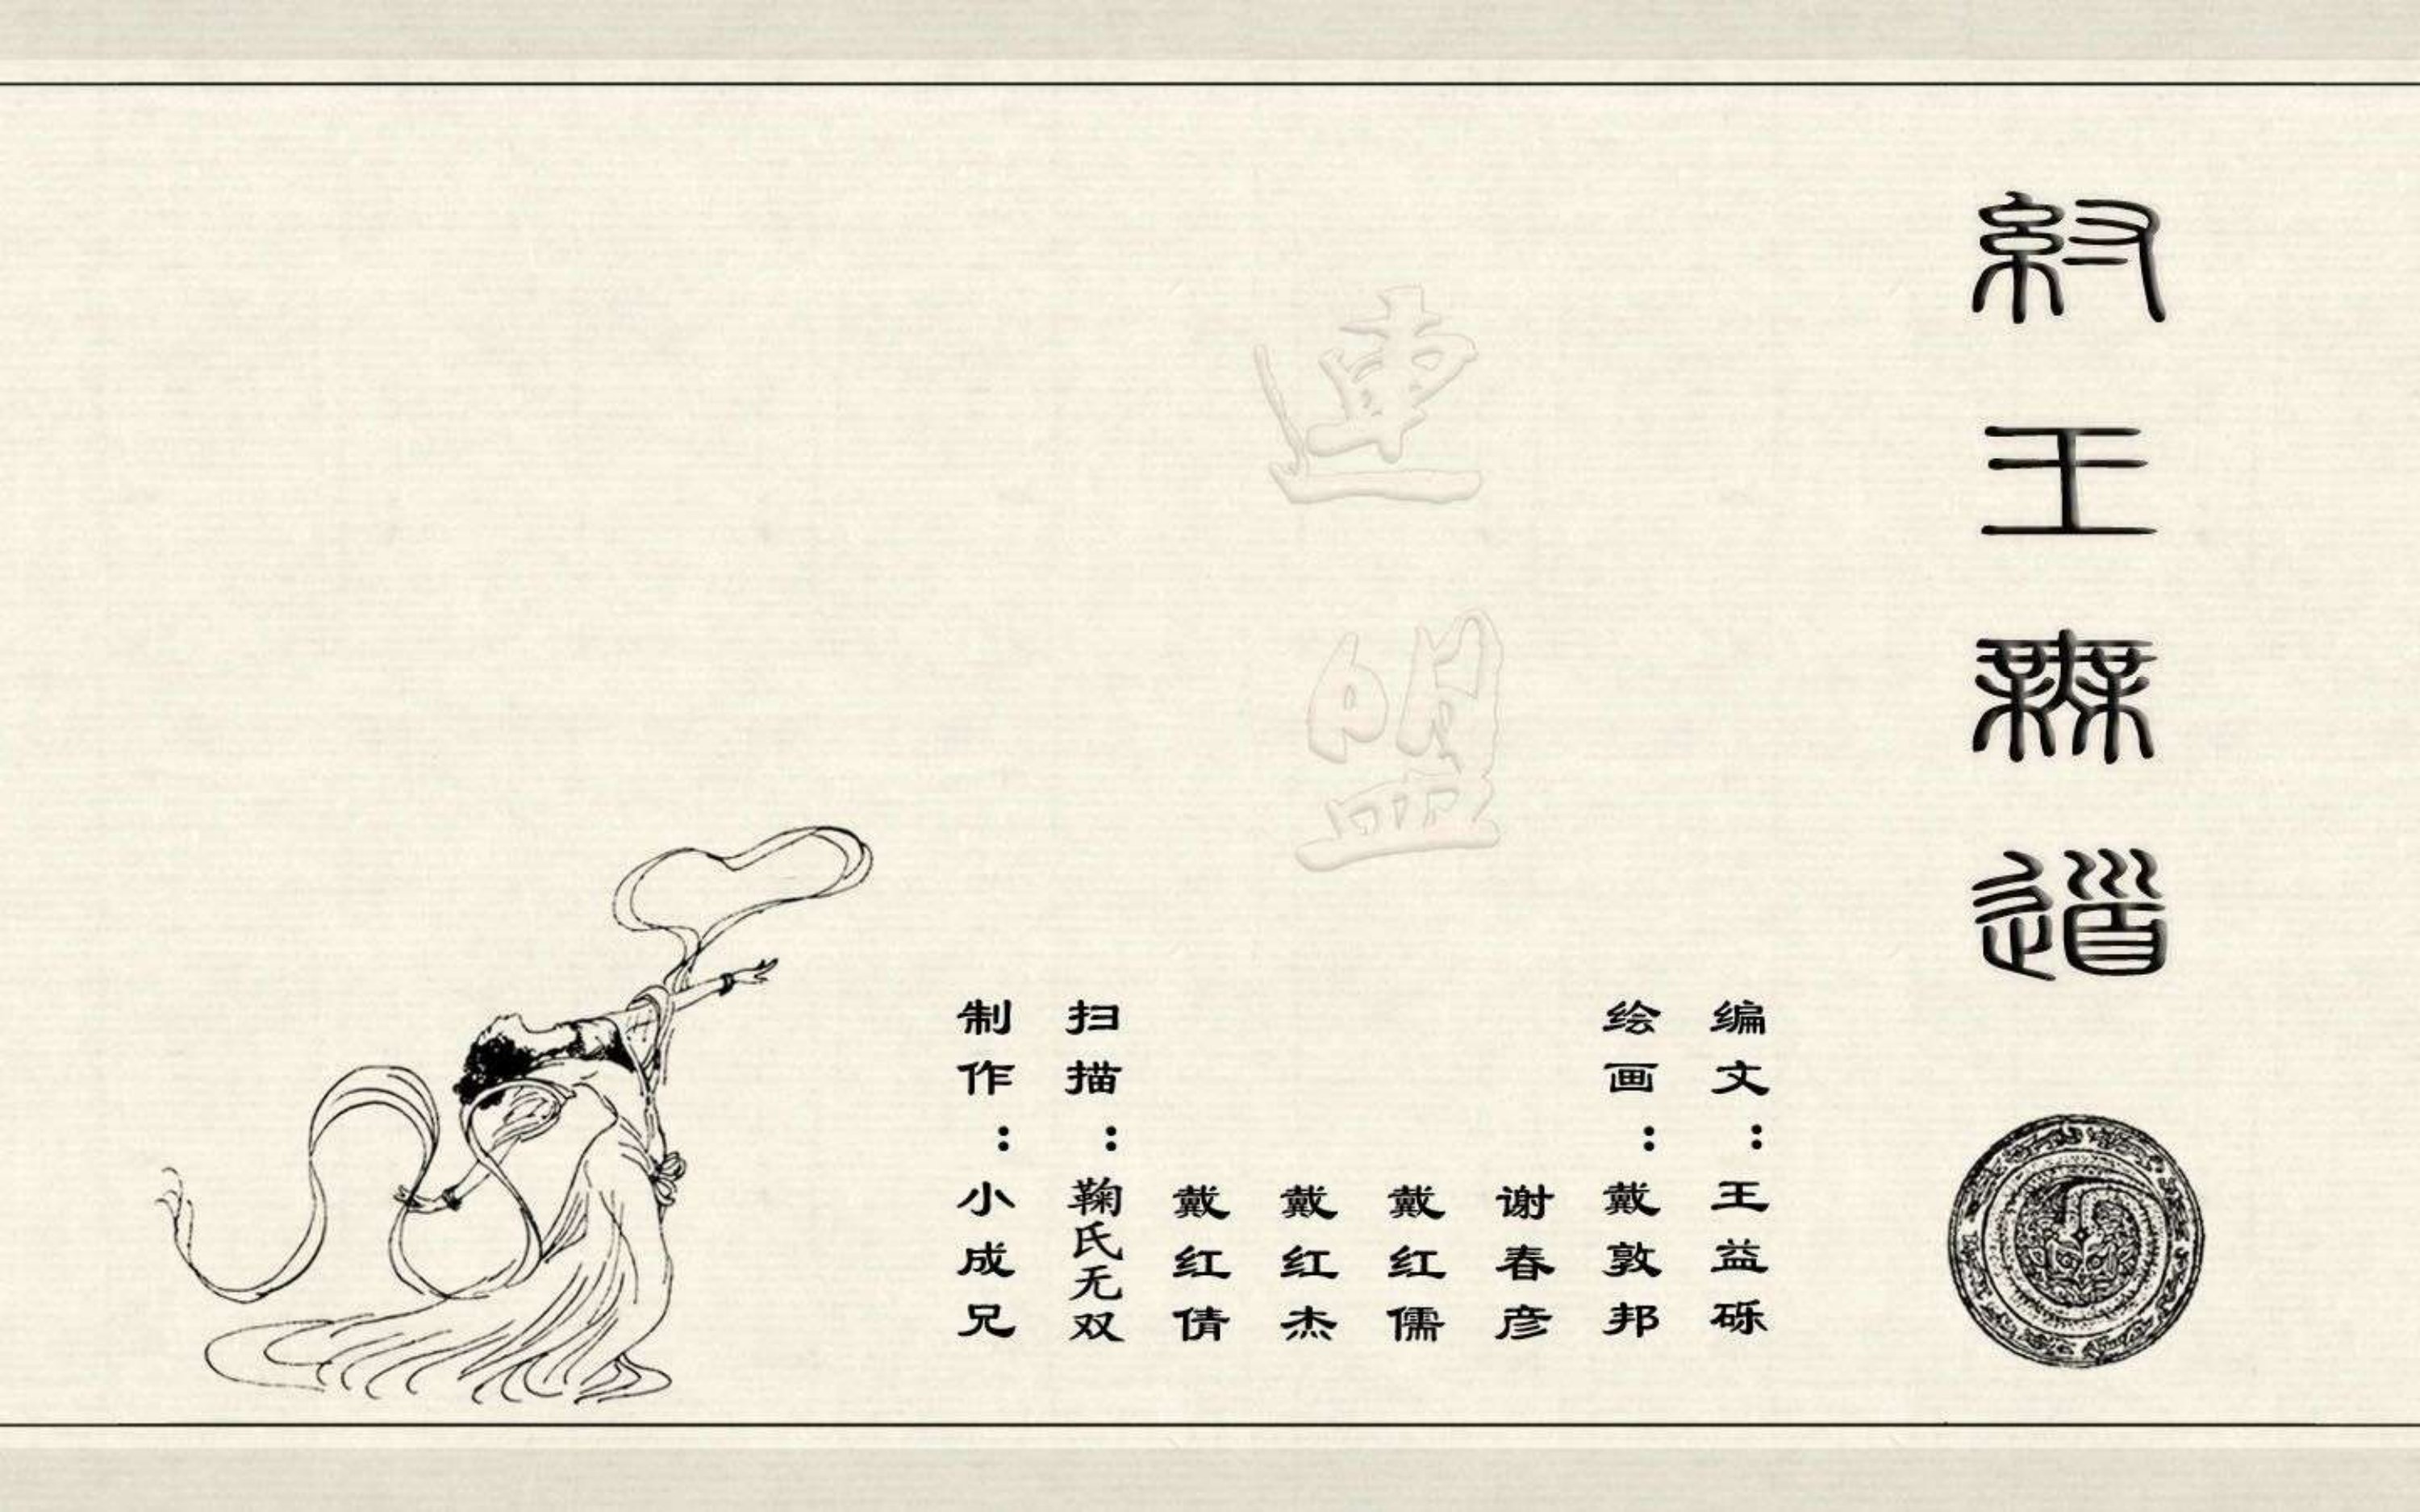 紂王無道
编文：王益砾
绘画：戴敦邦
谢春彦
戴红儒
戴红杰
戴红倩
扫描：鞠氏无双
制作：小成兄
連盟